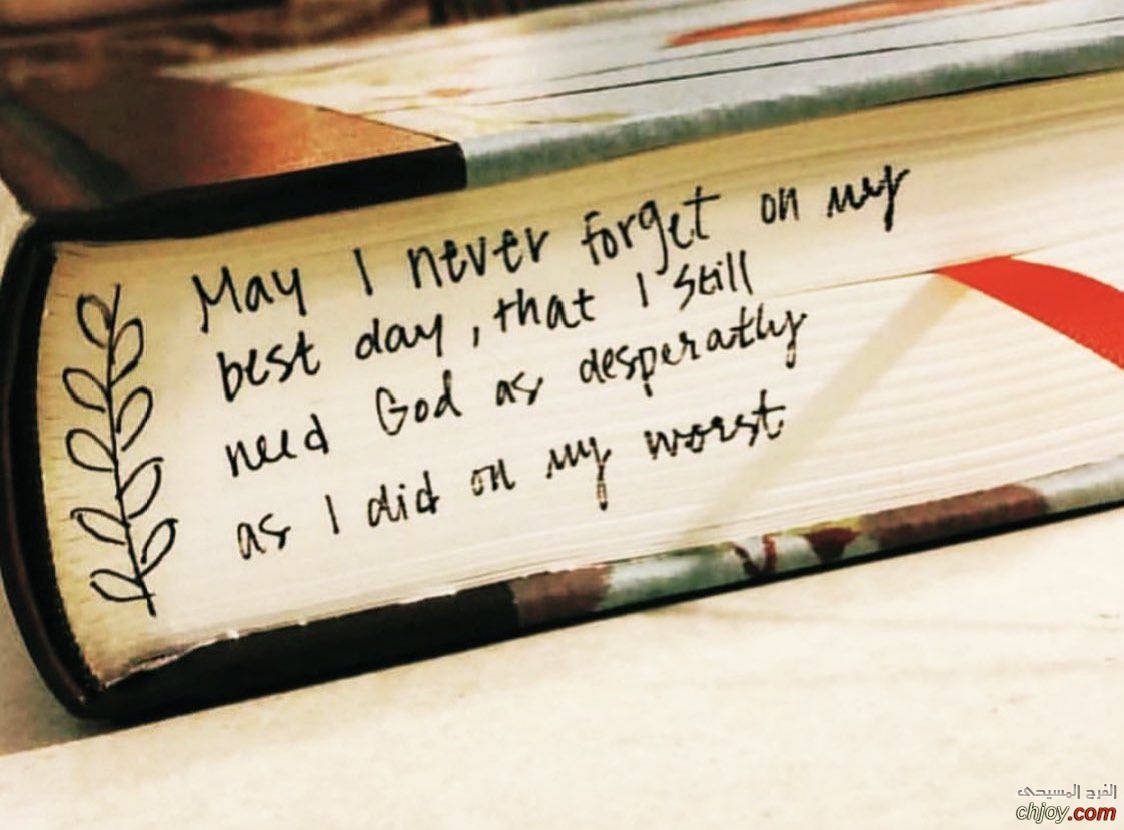 May I never forget on my
best day, that I still
need God as desperatly
as I did on my worst
الفرح المسيحى
chjoy.com